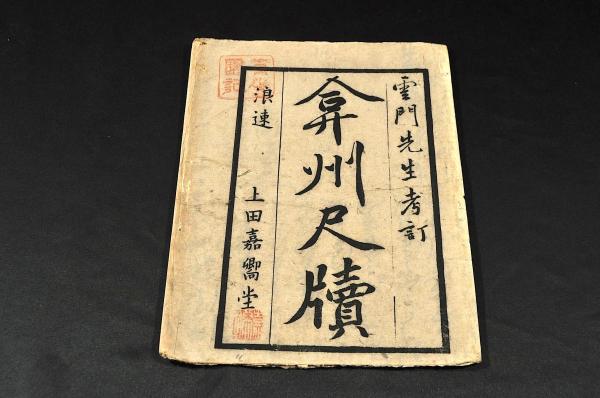 雲門先生考訂
弇州尺牘
浪速 上田嘉嚮堂